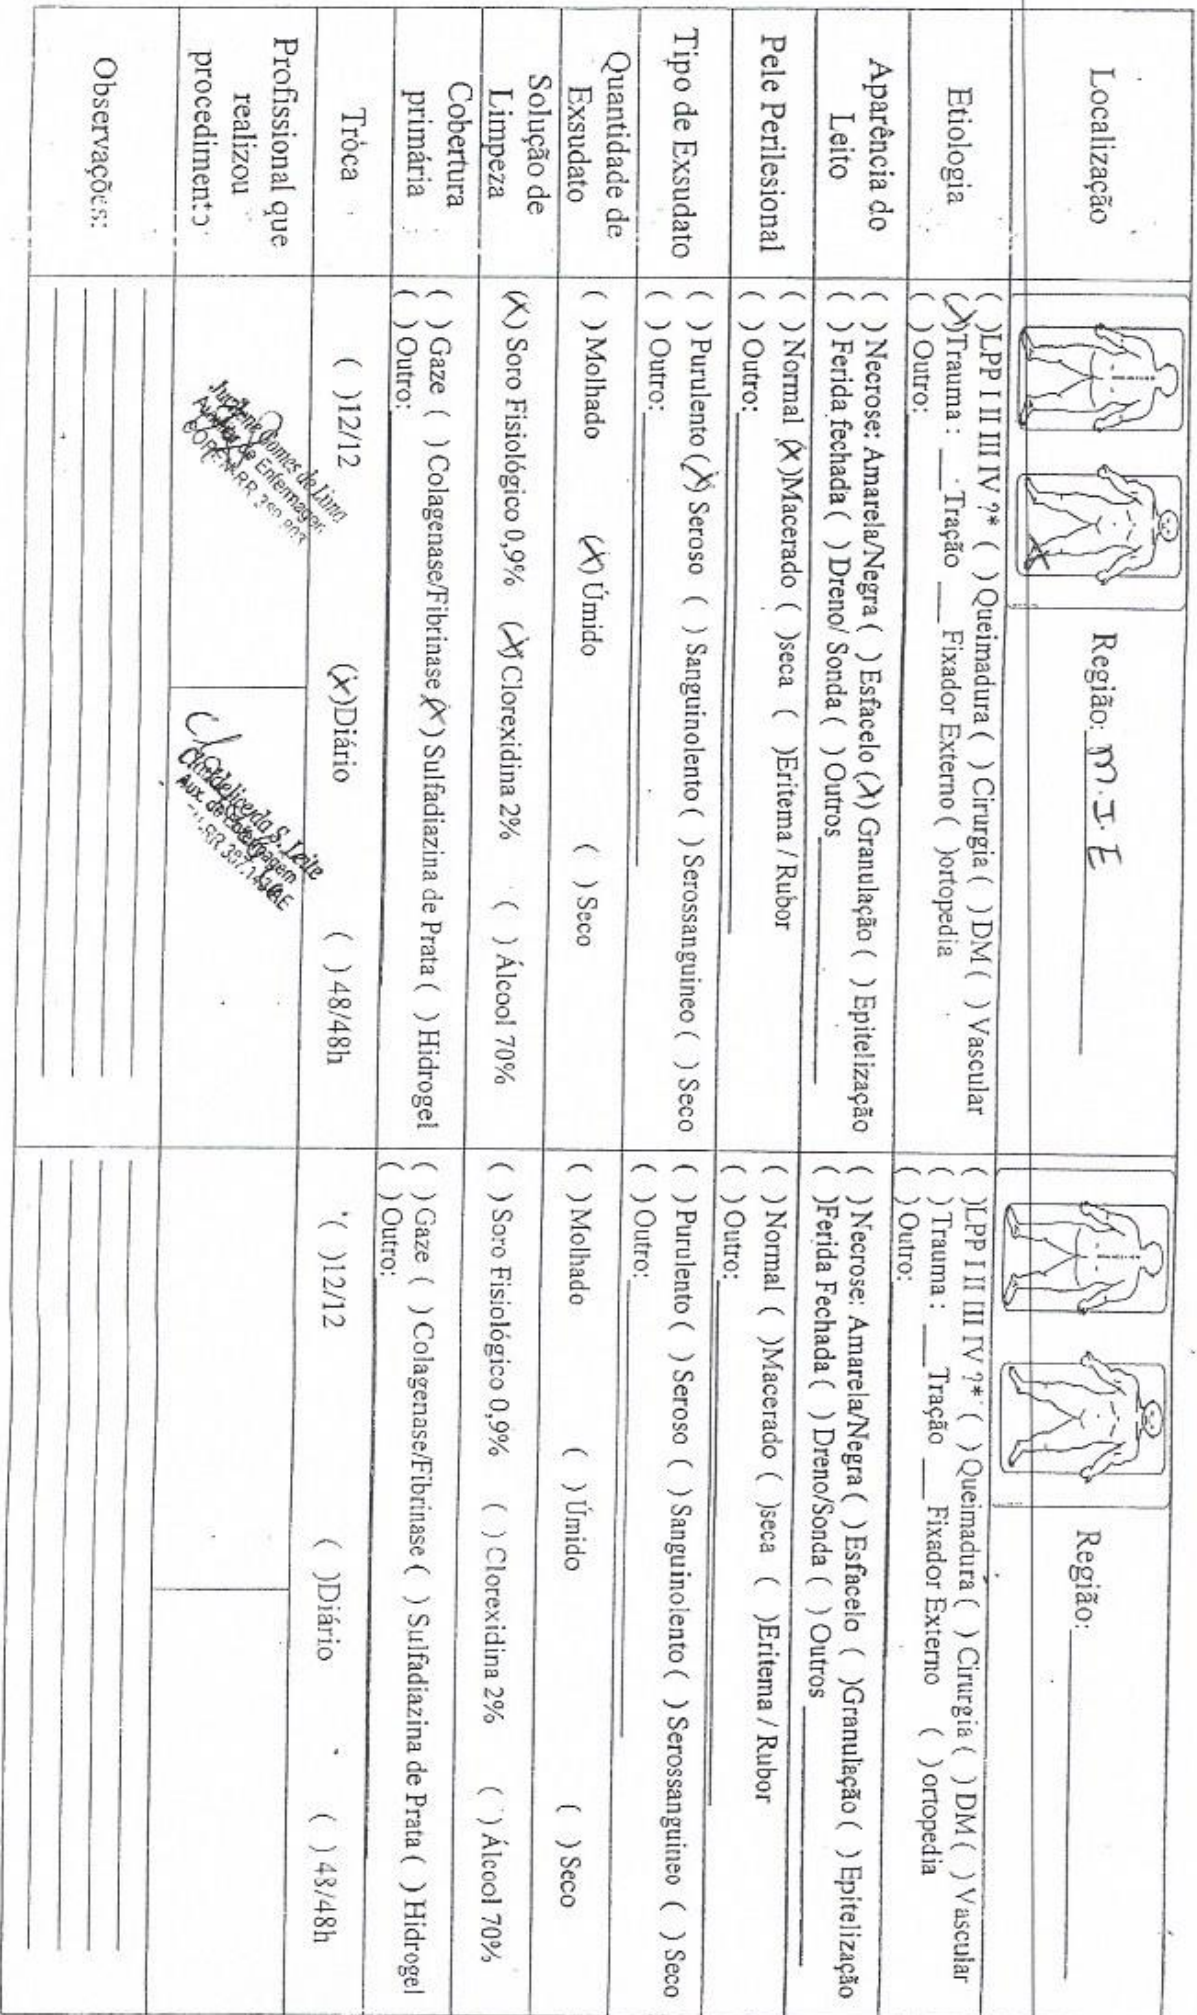 Localização
Região: M.I.E
Região:
Etiologia
( )LPP I II III IV ?* ( ) Queimadura ( ) Cirurgia ( ) DM ( ) Vascular
(X)Trauma : ___ Tração ___ Fixador Externo ( )ortopedia
( ) Outro:
( )LPP I II III IV ?* ( ) Queimadura ( ) Cirurgia ( ) DM ( ) Vascular
( ) Trauma : ___ Tração ___ Fixador Externo ( ) ortopedia
( ) Outro:
Aparência do
Leito
( ) Necrose: Amarela/Negra ( ) Esfacelo (X) Granulação ( ) Epitelização
( ) Ferida fechada ( ) Dreno/ Sonda ( ) Outros
( ) Necrose: Amarela/Negra ( ) Esfacelo ( )Granulação ( ) Epitelização
( )Ferida Fechada ( ) Dreno/Sonda ( ) Outros
Pele Perilesional
( ) Normal (X)Macerado ( )seca ( )Eritema / Rubor
( ) Outro:
( ) Normal ( )Macerado ( )seca ( )Eritema / Rubor
( ) Outro:
Tipo de Exsudato
( ) Purulento (X) Seroso ( ) Sanguinolento ( ) Serossanguineo ( ) Seco
( ) Outro:
( ) Purulento ( ) Seroso ( ) Sanguinolento ( ) Serossanguineo ( ) Seco
( ) Outro:
Quantidade de
Exsudato
( ) Molhado (X) Úmido ( ) Seco
( ) Molhado ( ) Úmido ( ) Seco
Solução de
Limpeza
(X) Soro Fisiológico 0,9% (X)Clorexidina 2% ( ) Álcool 70%
( ) Soro Fisiológico 0,9% ( ) Clorexidina 2% ( ) Álcool 70%
Cobertura
primária
( ) Gaze ( ) Colagenase/Fibrinase (X) Sulfadiazina de Prata ( ) Hidrogel
( ) Outro:
( ) Gaze ( ) Colagenase/Fibrinase ( ) Sulfadiazina de Prata ( ) Hidrogel
( ) Outro:
Troca
( )12/12 (X)Diário ( ) 48/48h
( )12/12 ( )Diário ( ) 48/48h
Profissional que
realizou
procedimento:
Gomes de Lima
de Enfermagem
S. Leite
Aux. de Enfermagem
Observações: